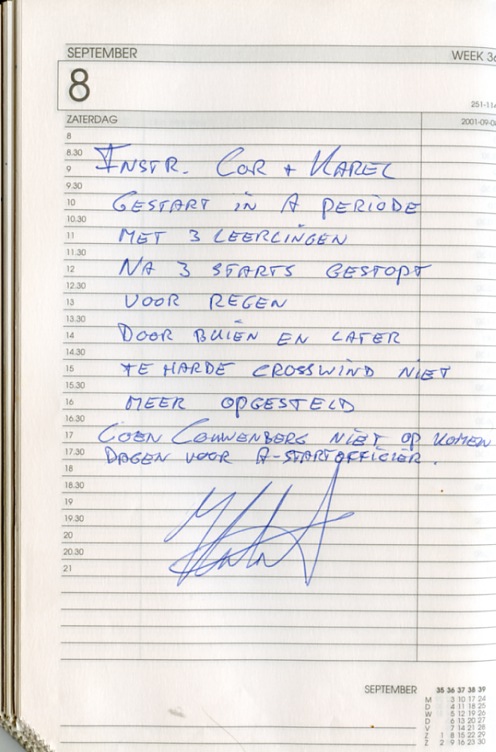 SEPTEMBER WEEK 36
8
251-114
ZATERDAG 2001-09-08
8
8.30 INSTR. COR + KAREL
9
9.30
10 GESTART IN A PERIODE
10.30
11 MET 3 LEERLINGEN
11.30
12 NA 3 STARTS GESTOPT
12.30
13 VOOR REGEN
13.30
14 DOOR BUIEN EN LATER
14.30
15 TE HARDE CROSSWIND NIET
15.30
16 MEER OPGESTELD
16.30
17 COEN COUWENBERG NIET OP KOMEN
17.30 DAGEN VOOR A-STARTOFFICIER.
18
18.30
19
19.30
20
20.30
21
SEPTEMBER 35 36 37 38 39
M 3 10 17 24
D 4 11 18 25
W 5 12 19 26
D 6 13 20 27
V 7 14 21 28
Z 1 8 15 22 29
Z 2 9 16 23 30